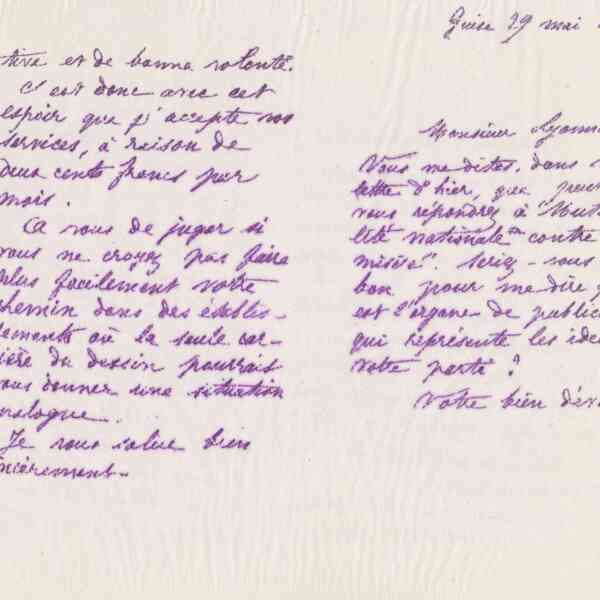 tive et de bonne volonté.
C'est donc avec cet
espoir que j'accepte vos
services, à raison de
deux cents francs par
mois.
A vous de juger si
vous ne croyez pas faire
plus facilement votre
chemin dans des établis-
sements où la seule car-
rière du dessin pourrait
vous donner une situation
analogue.
Je vous salue bien
sincèrement.
Guise 29 mai
Monsieur
Vous me dites, dans
lettre d'hier, que
vous répondrez à "Mut
lité nationale contre
misère". Seriez-vous
bon pour me dire
est l'organe de public
qui représente les idé
votre parti?
Votre bien dév